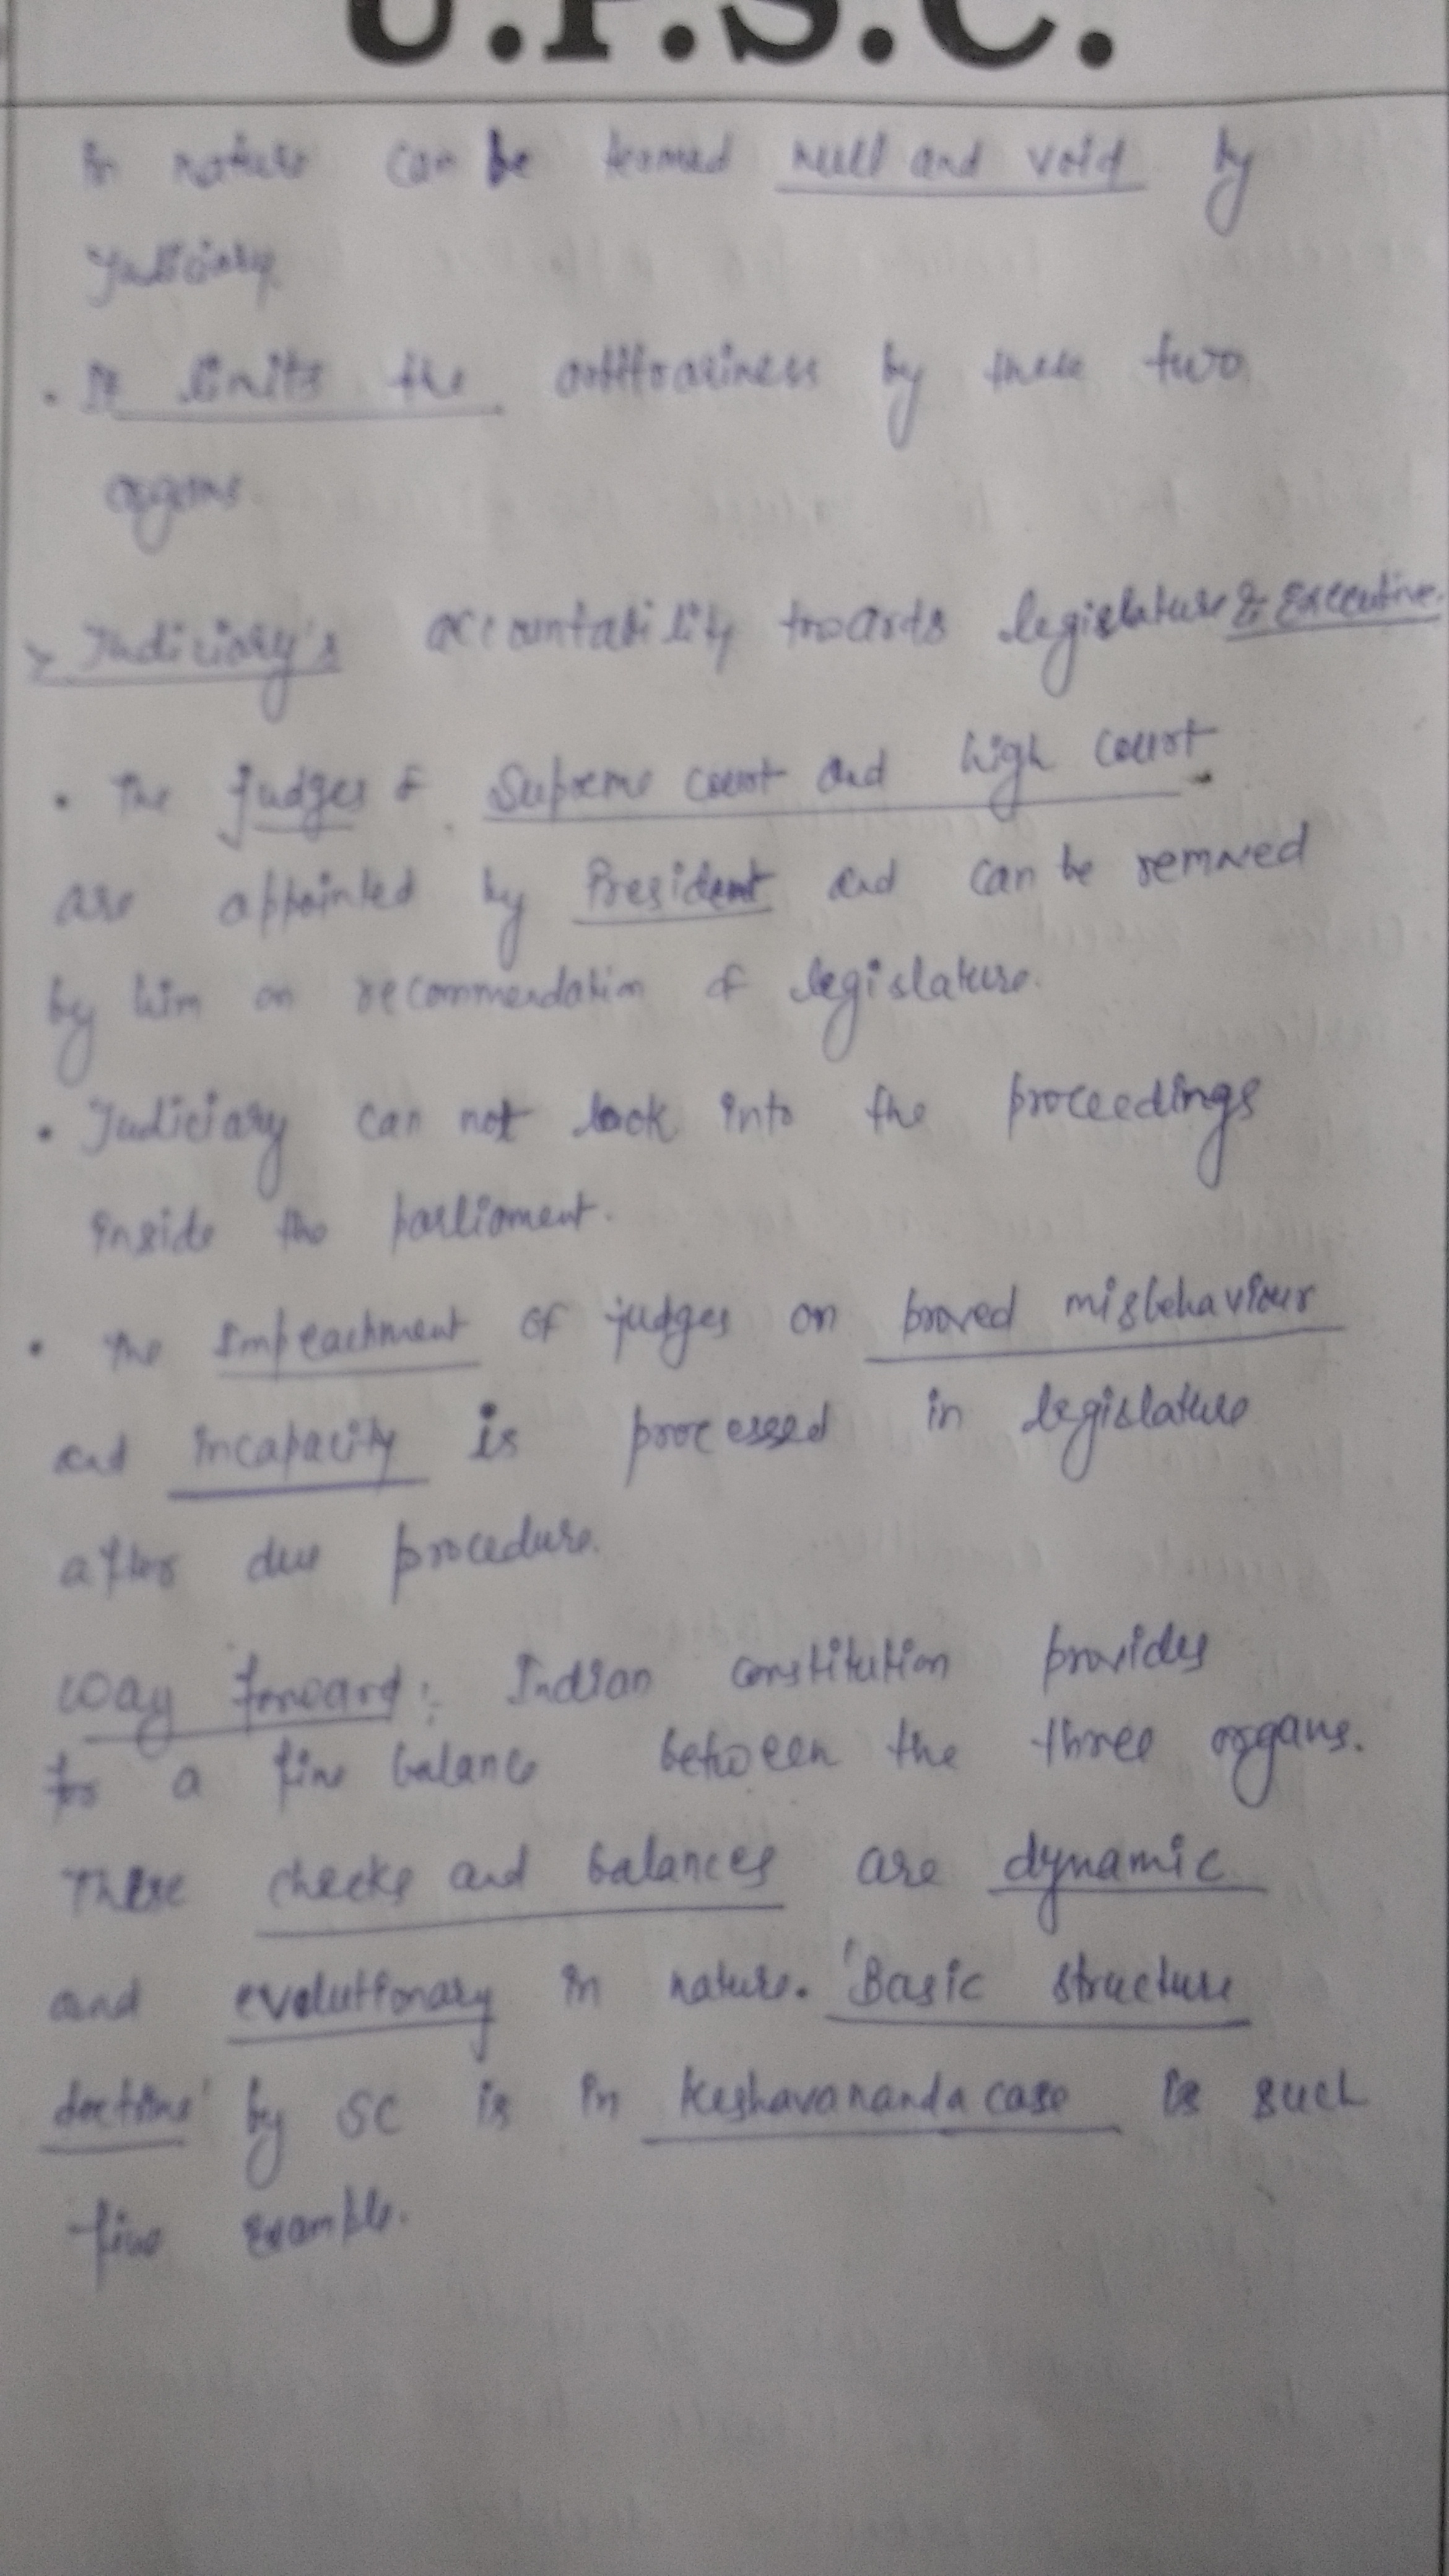 U.P.S.C.
in nature can be termed null and void by
Judiciary
. It limits the by these two
organs
> Judiciary's accountability legislature & Executive.
. The judges of Supreme court and high court
are appointed by President and can be removed
by him on recommendation of legislature.
. Judiciary can not look into the proceedings
inside the parliament.
. The Impeachment of judges on proved misbehaviour
and incapacity is processed in legislature
after due procedure.
Way forward: Indian constitution provides
for a fine balance between the three organs.
These checks and balances are dynamic
and evolutionary in nature. 'Basic structure
by SC is in Keshavananda case is such
fine example.